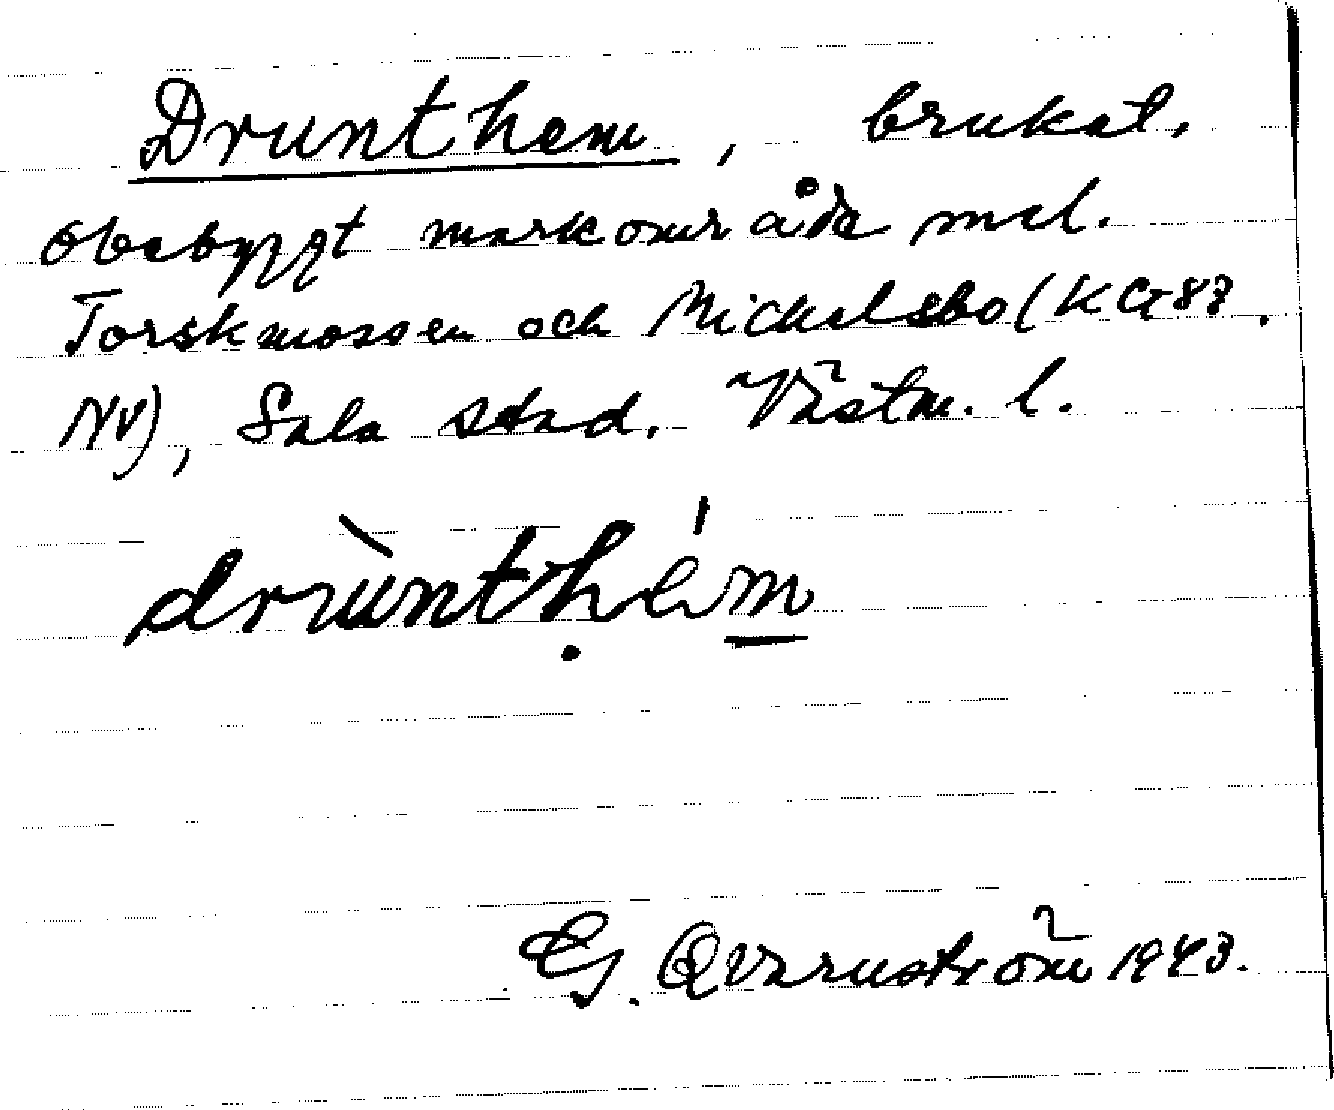 Drunthem, brukat.
obebyggt markområde mel.
Torskmossen och Mickelsbo (KG 87.
NV), Sala stad. Västm. l.
drùnthém
G. Qvarnström 1943.